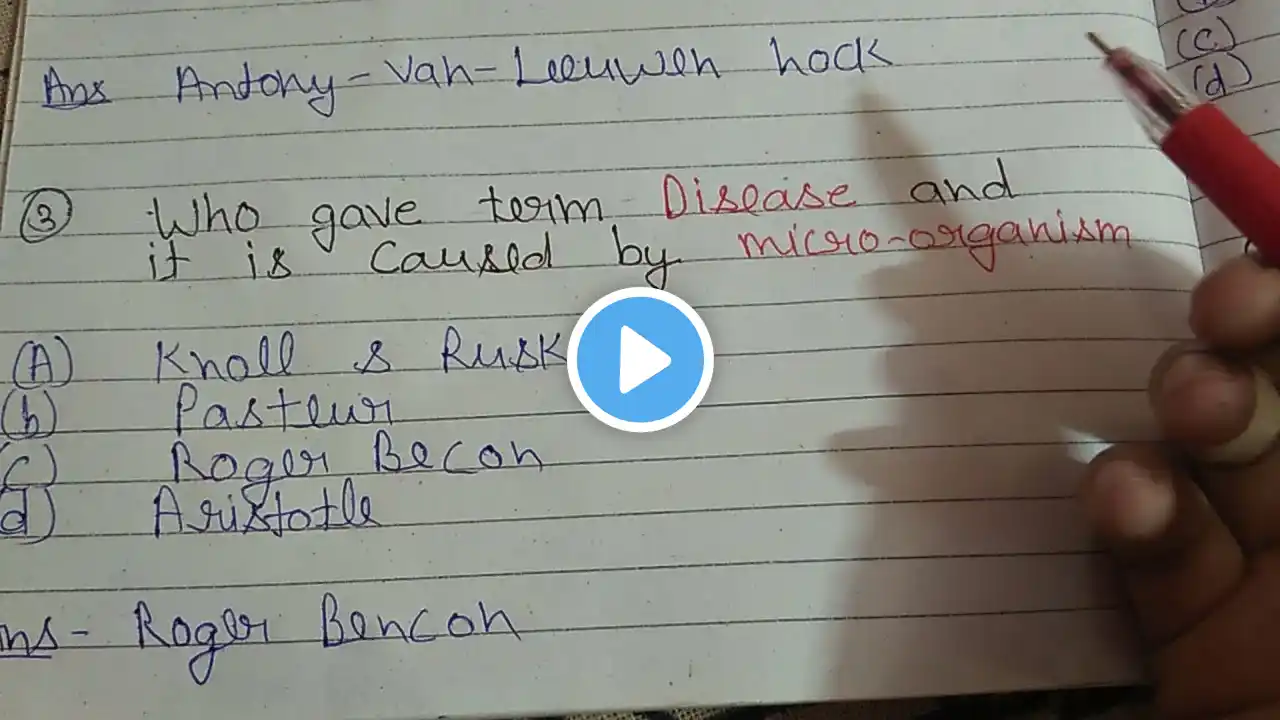 Ans Antony-Van-Leeuwen hock
(c)
(d)
③ Who gave term Disease and
it is caused by micro-organism
(A) Knoll & Rusk
(b) Pasteur
(c) Roger Becon
(d) Aristotle
Ans- Roger Bencon